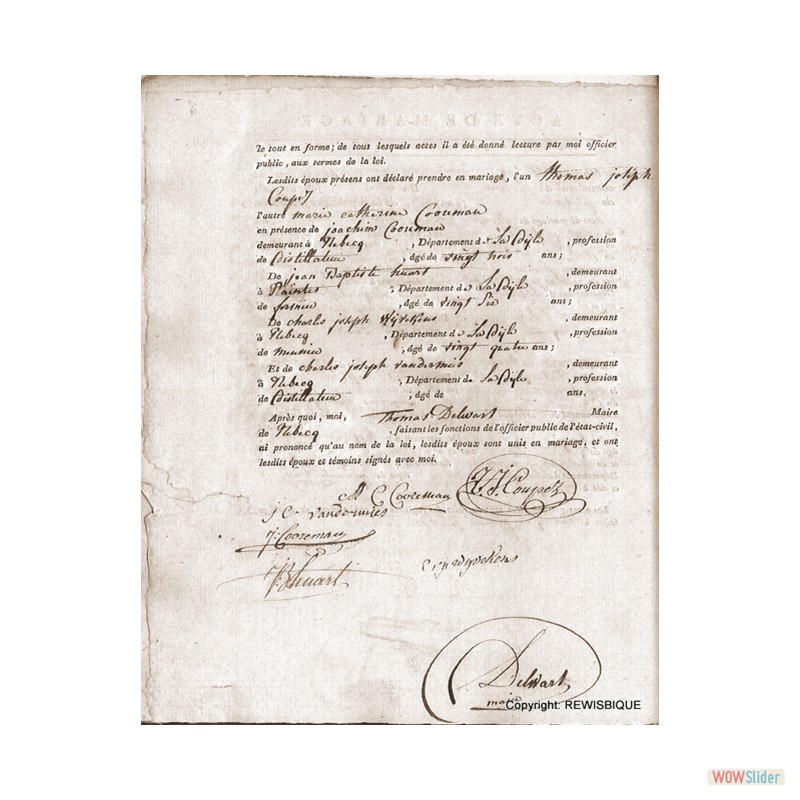 ACTE DE MARIAGE
le tout en forme; de tous lesquels actes il a été donné lecture par moi officier
public, aux termes de la loi.
Lesdits époux présens ont déclaré prendre en mariage, l'un thomas joseph
Coupez
l'autre marie catherine Cooreman
en présence de joachim Cooreman
demeurant à Rebecq , Département de La Dyle , profession
de Distillateur , âgé de vingt trois ans;
De jean Baptiste huart , demeurant
à , Département de La Dyle , profession
de fermier , âgé de vingt Six ans;
De charles joseph Wyvekens , demeurant
à Rebecq , Département de La Dyle , profession
de munier , âgé de vingt quatre ans;
Et de charles joseph vandermies , demeurant
à Rebecq , Département de La Dyle , profession
de Distillateur ; âgé de ans.
Après quoi, moi, Thomas Delwart Maire
de Rebecq , faisant les fonctions de l'officier public de l'état-civil,
ai prononcé qu'au nom de la loi, lesdits époux sont unis en mariage, et ont
lesdits époux et témoins signés avec moi.
M C Cooreman T. J. Coupez
j C vandermies
J. Cooreman
JB huart
Delwart
maire
Copyright: REWISBIQUE
WOWSlider